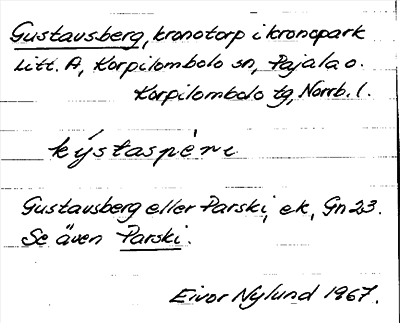 Gustavsberg, kronotorp i kronopark
Litt. A, Korpilombolo sn, Pajala o.
Korpilombolo tg, Norrb. l.
kýstaspèri
Gustavsberg eller Parski, ek, Gn 23.
Se även Parski.
Eivor Nylund 1967.